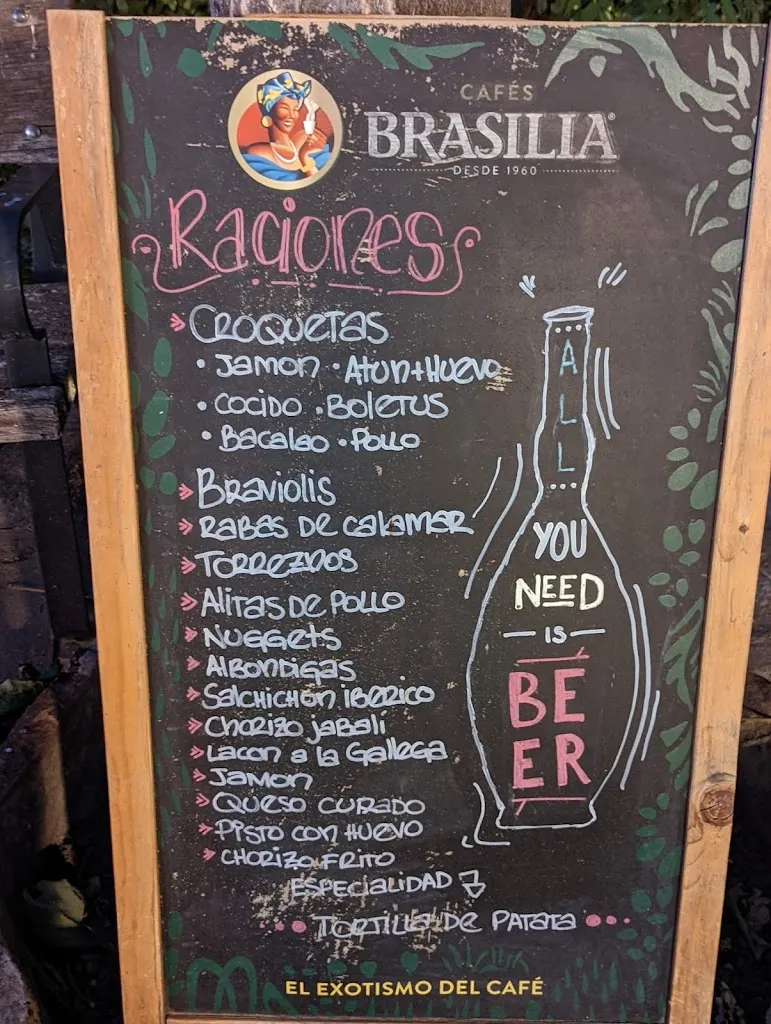 CAFÉS
BRASILIA
DESDE 1960
Raciones
CROQUETAS
• Jamon • Atun+Huevo
• Cocido • Boletus
• Bacalao • Pollo
Braviolis
Rabas de calamar
Torreznos
Alitas de pollo
Nuggets
Albondigas
Salchichon iberico
Chorizo jabalí
Lacon a la Gallega
Jamon
Queso curado
Pisto con huevo
Chorizo frito
Especialidad
Tortilla de patata
ALL
YOU
NEED
IS
BE
ER
EL EXOTISMO DEL CAFÉ